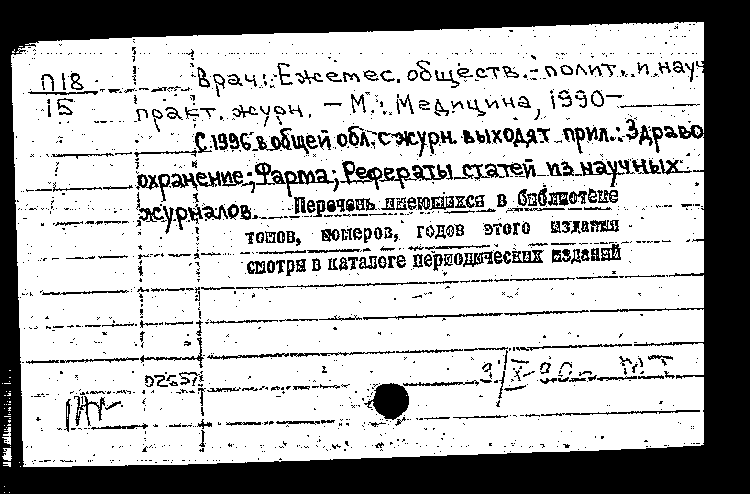 П18
15
Врач: Ежемес. обществ.-полит. и науч
практ. журн. — М.: Медицина, 1990—
С 1996 в общей обл. с журн. выходят прил.: Здраво
охранение; Фарма; Рефераты статей из научных
журналов. Перечень имеющихся в библиотеке
томов, номеров, годов этого издания
смотри в каталоге периодических изданий
02657
9/X-90г. МТ